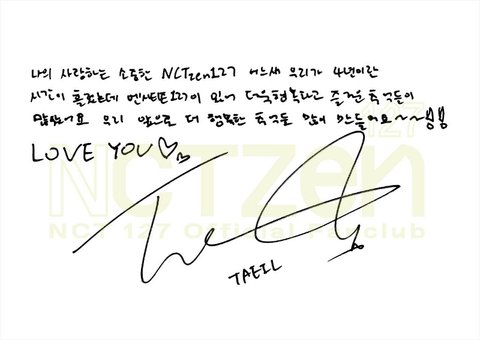 나의 사랑하는 소중한 NCTzen127 어느새 우리가 4년이란
시간이 흘렀는데 엔시티즌127이 있어 더욱 행복하고 즐거운 추억들이
많았어요 우리 앞으로 더 행복한 추억들 많이 만들어요~~!!
LOVE YOU♡
127
NCTzen
NCT 127 Official Fanclub
TAEIL